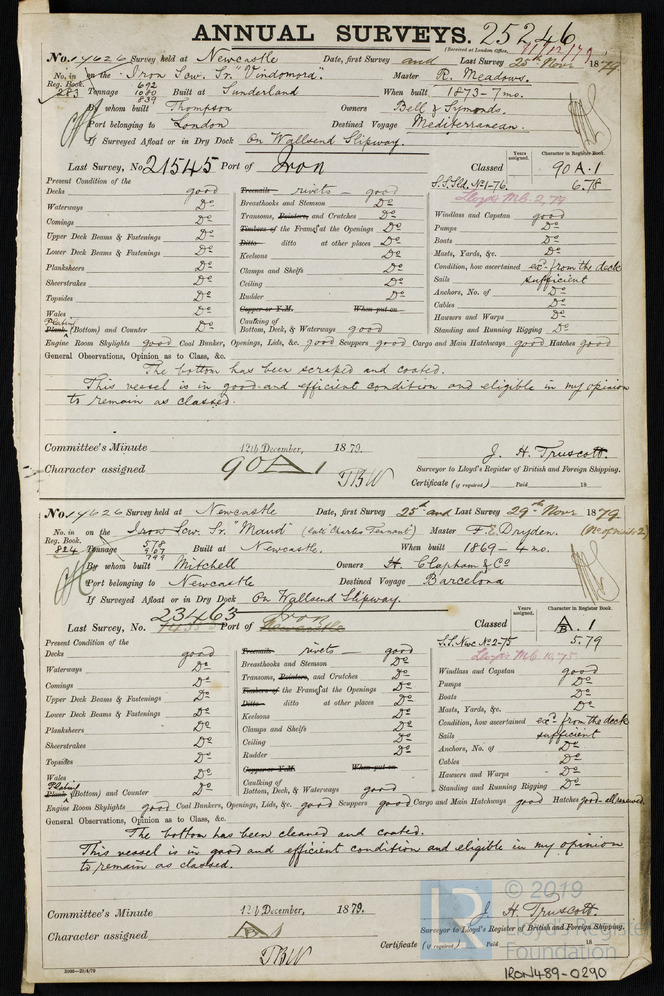 ANNUAL SURVEYS. 25246
(Received at London Office,
No. 17626 Survey held at Newcastle Date, first Survey and Last Survey 25th Novr 1879
No. in Reg. Book. 283 on the Iron Scw. Sr. "Vindomora". Master R. Meadows.
Tonnage 692 1080 839 Built at Sunderland When built 1873 - 7 mo.
By whom built Thompson Owners Bell & Symonds.
Port belonging to London Destined Voyage Mediterranean.
If Surveyed Afloat or in Dry Dock On Wallsend Slipway.
Years assigned. Character in Register Book.
Last Survey, No. 21545 Port of Iron Classed 90 A.1
S.S. Sld. No1-76. 6.78
Lloyd's M.C. 2,79
Present Condition of the
Decks good Treenails rivets - good
Waterways Do Breasthooks and Stemson Do Windlass and Capstan good
Comings Do Transoms, Pointers, and Crutches Do Pumps Do
Upper Deck Beams & Fastenings Do Timbers of the Frames at the Openings Do Boats Do
Lower Deck Beams & Fastenings Do Ditto ditto at other places Do Masts, Yards, &c. Do
Planksheers Do Keelsons Do Condition, how ascertained exd from the deck
Sheerstrakes Do Clamps and Shelfs Do Sails sufficient
Topsides Do Ceiling Do Anchors, No. of Do
Wales Do Rudder Do Cables Do
Copper or Y.M. When put on Hawsers and Warps Do
Plank Plating (Bottom) and Counter Do Caulking of Bottom, Deck, & Waterways good Standing and Running Rigging Do
Engine Room Skylights good Coal Bunker, Openings, Lids, &c. good Scuppers good Cargo and Main Hatchways good Hatches good
General Observations, Opinion as to Class, &c.
The bottom has been scraped and coated.
This vessel is in good and efficient condition and eligible in my opinion
to remain as classed.
Committee's Minute 12th December, 1879. J. H. Truscott.
Character assigned 90 A 1 Surveyor to Lloyd's Register of British and Foreign Shipping.
TBW Certificate (if required) Paid 18
No. 17626 Survey held at Newcastle Date, first Survey 25th and Last Survey 29th Novr 1879
No. in Reg. Book. 824 on the Iron Scw. Sr. "Maud" (late Charles Tennant) Master F. E. Dryden. (No of visits 2)
Tonnage 578 907 799 Built at Newcastle. When built 1869 - 4 mo.
By whom built Mitchell Owners H. Clapham & Co
Port belonging to Newcastle Destined Voyage Barcelona
If Surveyed Afloat or in Dry Dock On Wallsend Slipway.
Years assigned. Character in Register Book.
Last Survey, No. 23463 Port of Iron Newcastle Classed A B .1
S.S. Nwc No2-75 5.79
Present Condition of the
Decks good Treenails rivets - good
Waterways Do Breasthooks and Stemson Do Windlass and Capstan good
Comings Do Transoms, Pointers, and Crutches Do Pumps Do
Upper Deck Beams & Fastenings Do Timbers of the Frames at the Openings Do Boats Do
Lower Deck Beams & Fastenings Do Ditto ditto at other places Do Masts, Yards, &c. Do
Planksheers Do Keelsons Do Condition, how ascertained exd from the deck
Sheerstrakes Do Clamps and Shelfs Do Sails sufficient
Topsides Do Ceiling Do Anchors, No. of Do
Wales Do Rudder Do Cables Do
Copper or Y.M. When put on Hawsers and Warps Do
Plank Plating (Bottom) and Counter Do Caulking of Bottom, Deck, & Waterways good Standing and Running Rigging Do
Engine Room Skylights good Coal Bunkers, Openings, Lids, &c. good Scuppers good Cargo and Main Hatchways good Hatches good - all renewed.
General Observations, Opinion as to Class, &c.
The bottom has been cleaned and coated.
This vessel is in good and efficient condition and eligible in my opinion
to remain as classed.
Committee's Minute 12th December, 1879. J. H. Truscott.
Character assigned A B 1 Surveyor to Lloyd's Register of British and Foreign Shipping.
TBW Certificate (if required) Paid 18
© 2019
Lloyd's Register
Foundation
IRON489-0290